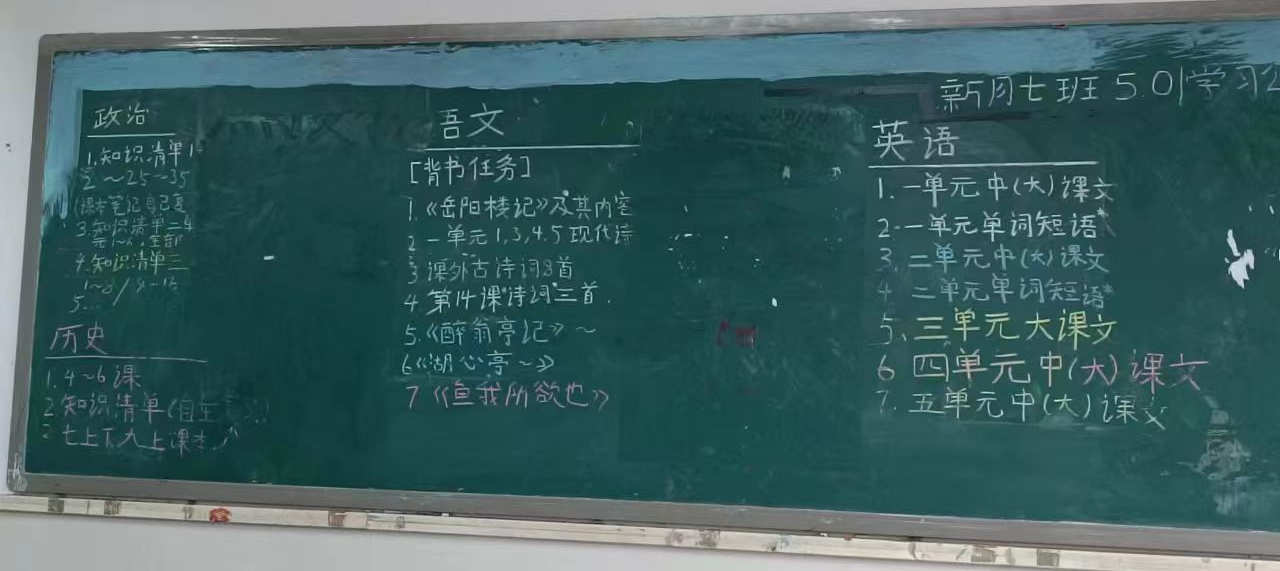 新月七班 5.01学习
政治
1.知识清单1
2 ~25~35
(课本笔记自己复
3.知识清单二单
元1~6.全部
4.知识清单三
1~8/
5...
历史
1.4~6课
2.知识清单(自主
七上下九上课本
吾文
[背书任务]
1.《岳阳楼记》及其内容
2 一单元1,3,4.5现代诗
3 课外古诗词8首
4 第14课"诗词"三首.
5.《醉翁亭记》~
6《湖心亭~》
7《鱼我所欲也》
英语
1.一单元中(大)课文
2.一单元单词短语*
3.二单元中(大)课文
4.二单元单词短语*
5、三单元大课文
6 四单元中(大)课文
7.五单元中(大)课文